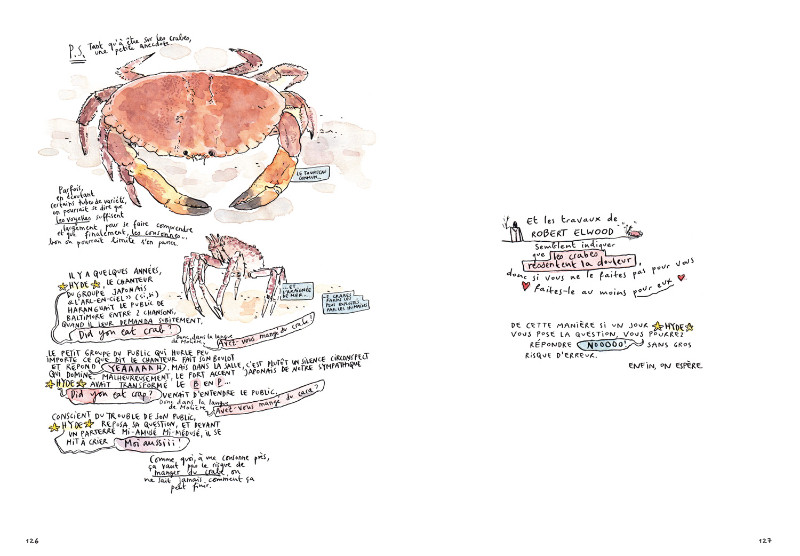 P.S. Tant qu'à être sur les crabes,
une petite anecdote.
LE TOURTEAU
COMMUN...
Parfois,
en écoutant
certains tubes de variété,
on pourrait se dire que
les voyelles suffisent
largement pour se faire comprendre
et qu'finalement, les consonnes...
bon on pourrait limite s'en passer.
... ET
L'ARAIGNÉE
DE MER...
2 CRABES
PARMI LES
PLUS EXPLOITÉS
PAR LES HUMAINS
IL Y A QUELQUES ANNÉES,
HYDE, LE CHANTEUR
DU GROUPE JAPONAIS
« L'ARC-EN-CIEL » (si, si)
HARANGUAIT LE PUBLIC DE
BALTIMORE ENTRE 2 CHANSONS,
QUAND IL LEUR DEMANDA SUBITEMENT,
Did you eat crab?
Donc, dans la langue
de Molière
Avez-vous mangé du crabe!
LE PETIT GROUPE DU PUBLIC QUI HURLE PEU
IMPORTE CE QUE DIT LE CHANTEUR FAIT SON BOULOT
ET RÉPOND YEAAAAAH, MAIS DANS LA SALLE, C'EST PLUTÔT UN SILENCE CIRCONSPECT
QUI DOMINE. MALHEUREUSEMENT, LE FORT ACCENT JAPONAIS DE NOTRE SYMPATHIQUE
HYDE AVAIT TRANSFORMÉ LE B EN P...
Did you eat crap? VENAIT D'ENTENDRE LE PUBLIC,
Donc dans la langue
de Molière
Avez-vous mangé du caca?
CONSCIENT DU TROUBLE DE SON PUBLIC,
HYDE REPOSA SA QUESTION, ET DEVANT
UN PARTERRE MI-AMUSÉ MI-MÉDUSÉ, IL SE
MIT À CRIER Moi aussiii!
Comme quoi, à une consonne près,
ça vaut pas le risque de
manger du crabe, on
ne sait jamais comment ça
peut finir.
126
Et les travaux de
ROBERT ELWOOD
semblent indiquer
que les crabes
ressentent la douleur,
donc si vous ne le faites pas pour vous
faites-le au moins pour eux
DE CETTE MANIÈRE SI UN JOUR HYDE
VOUS POSE LA QUESTION, VOUS POURREZ
RÉPONDRE NOOOOO! SANS GROS
RISQUE D'ERREUR.
ENFIN, ON ESPÈRE.
127